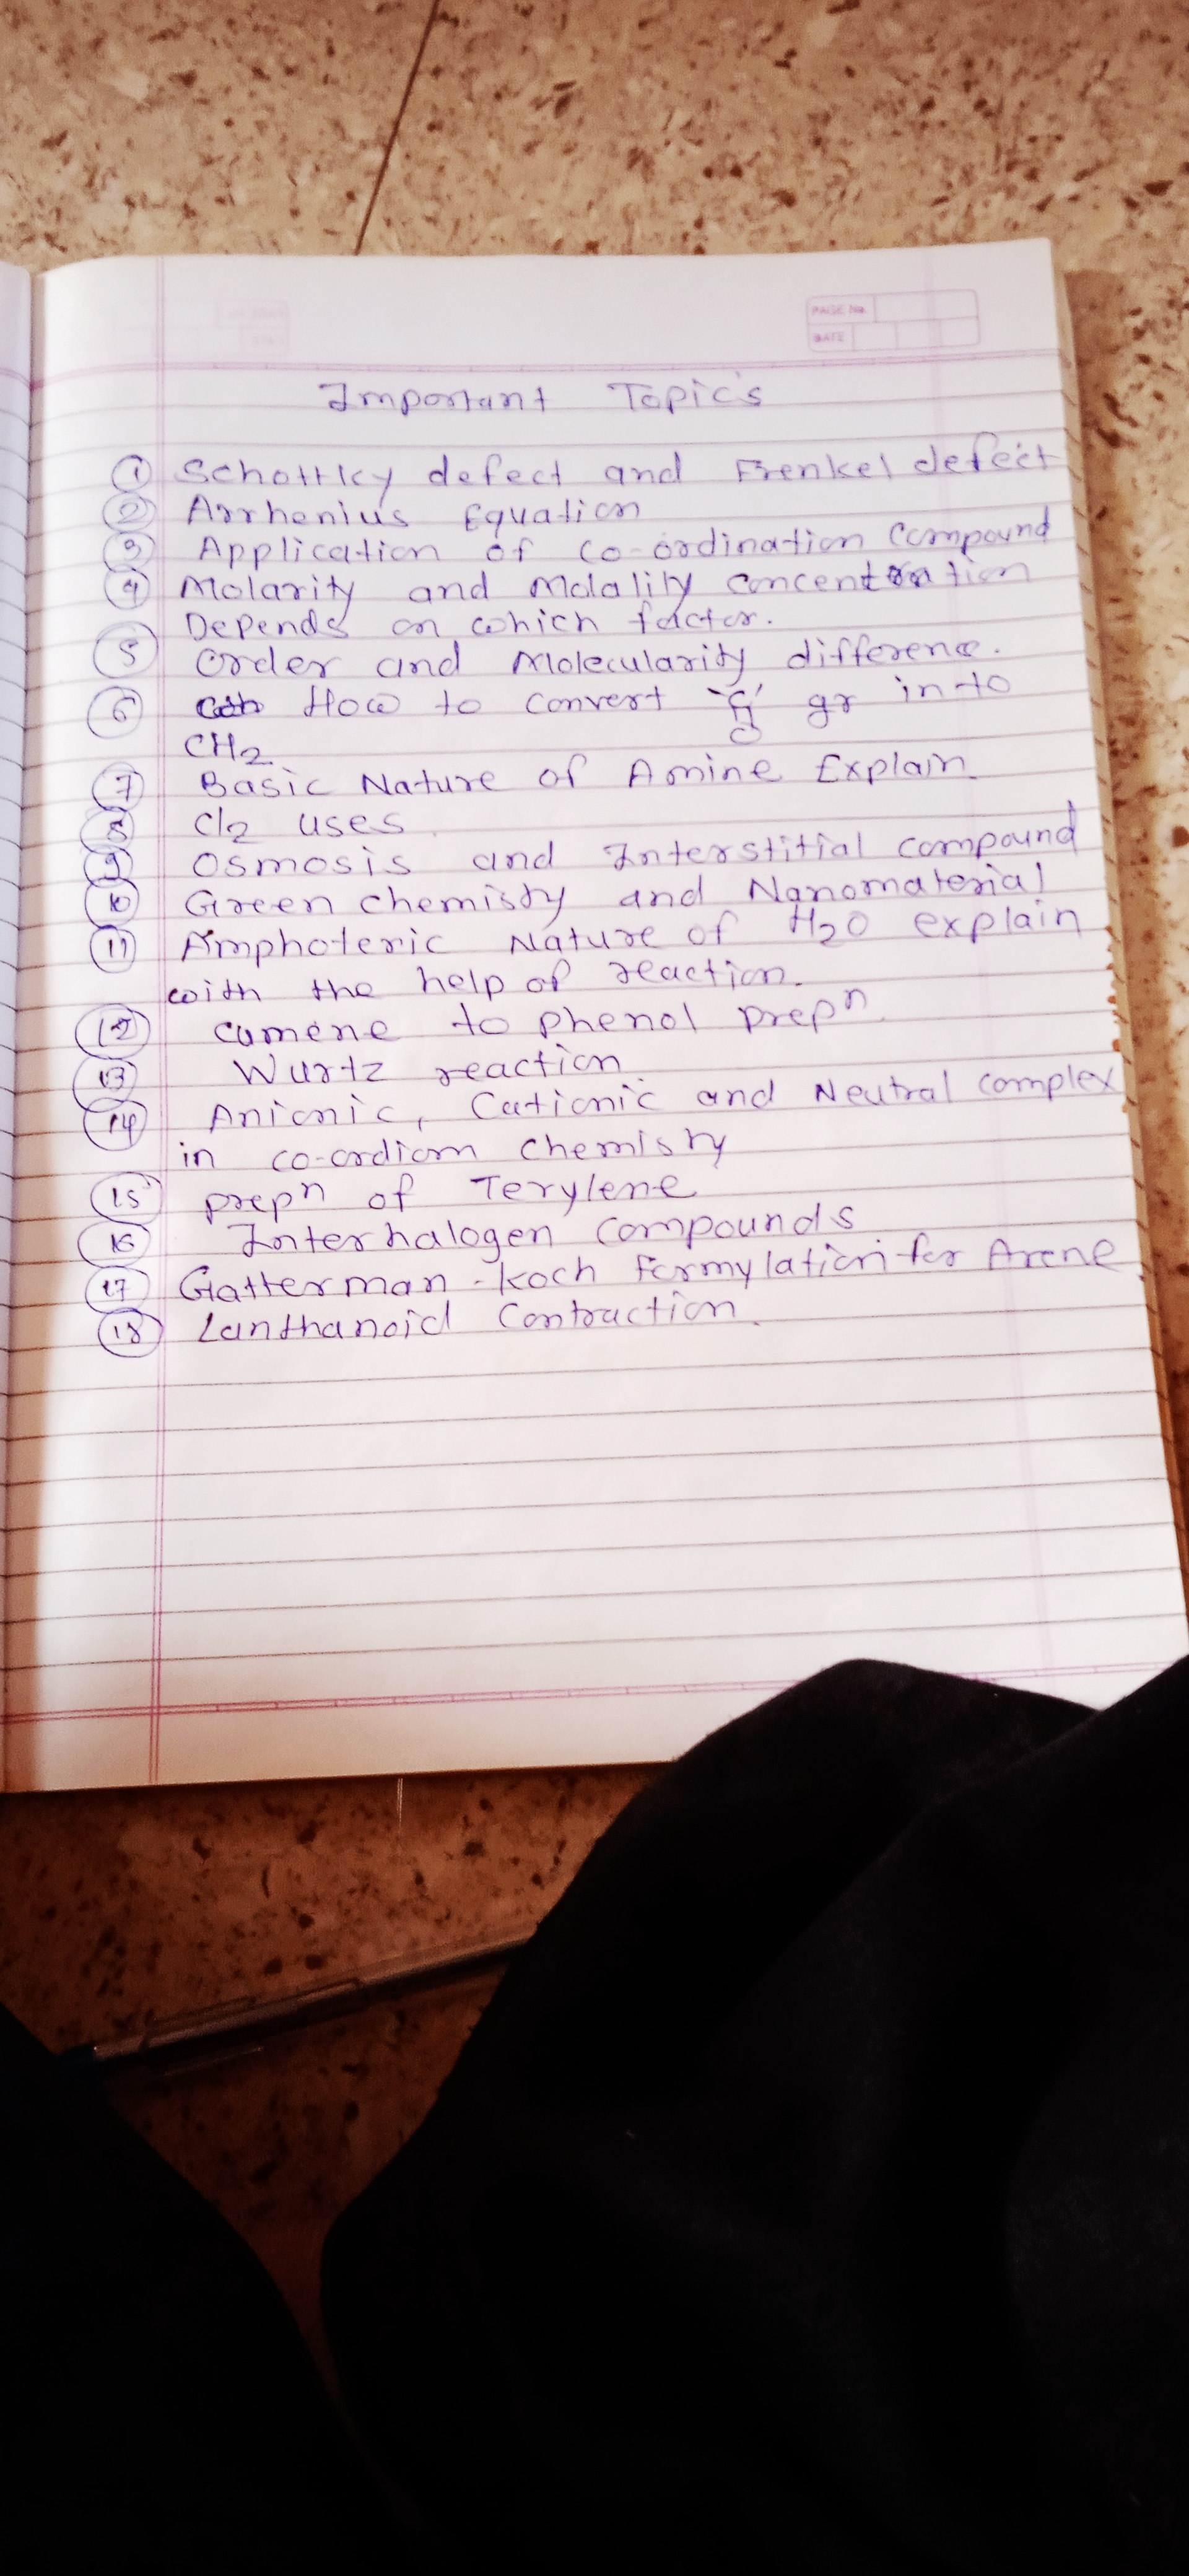 PAGE No.
DATE
Important Topic's
① Schottky defect and Frenkel defect
② Arrhenius Equation
③ Application of co-ordination compound
④ Molarity and Molality concentration
Depends on which factor.
⑤ Order and Molecularity difference.
⑥ How to convert -C- gr into
O
CH2
⑦ Basic Nature of Amine Explain
⑧ Cl2 uses
⑨ Osmosis and Interstitial compound
⑩ Green chemisty and Nanomaterial
⑪ Amphoteric Nature of H2O explain
with the help of reaction.
⑫ cumene to phenol prepn.
⑬ Wurtz reaction
⑭ Anionic, Cationic and Neutral complex
in co-ordiom chemistry
⑮ prepn of Terylene
⑯ Interhalogen compounds
⑰ Gatterman-koch Formylation for Arene
⑱ Lanthanoid Contraction.